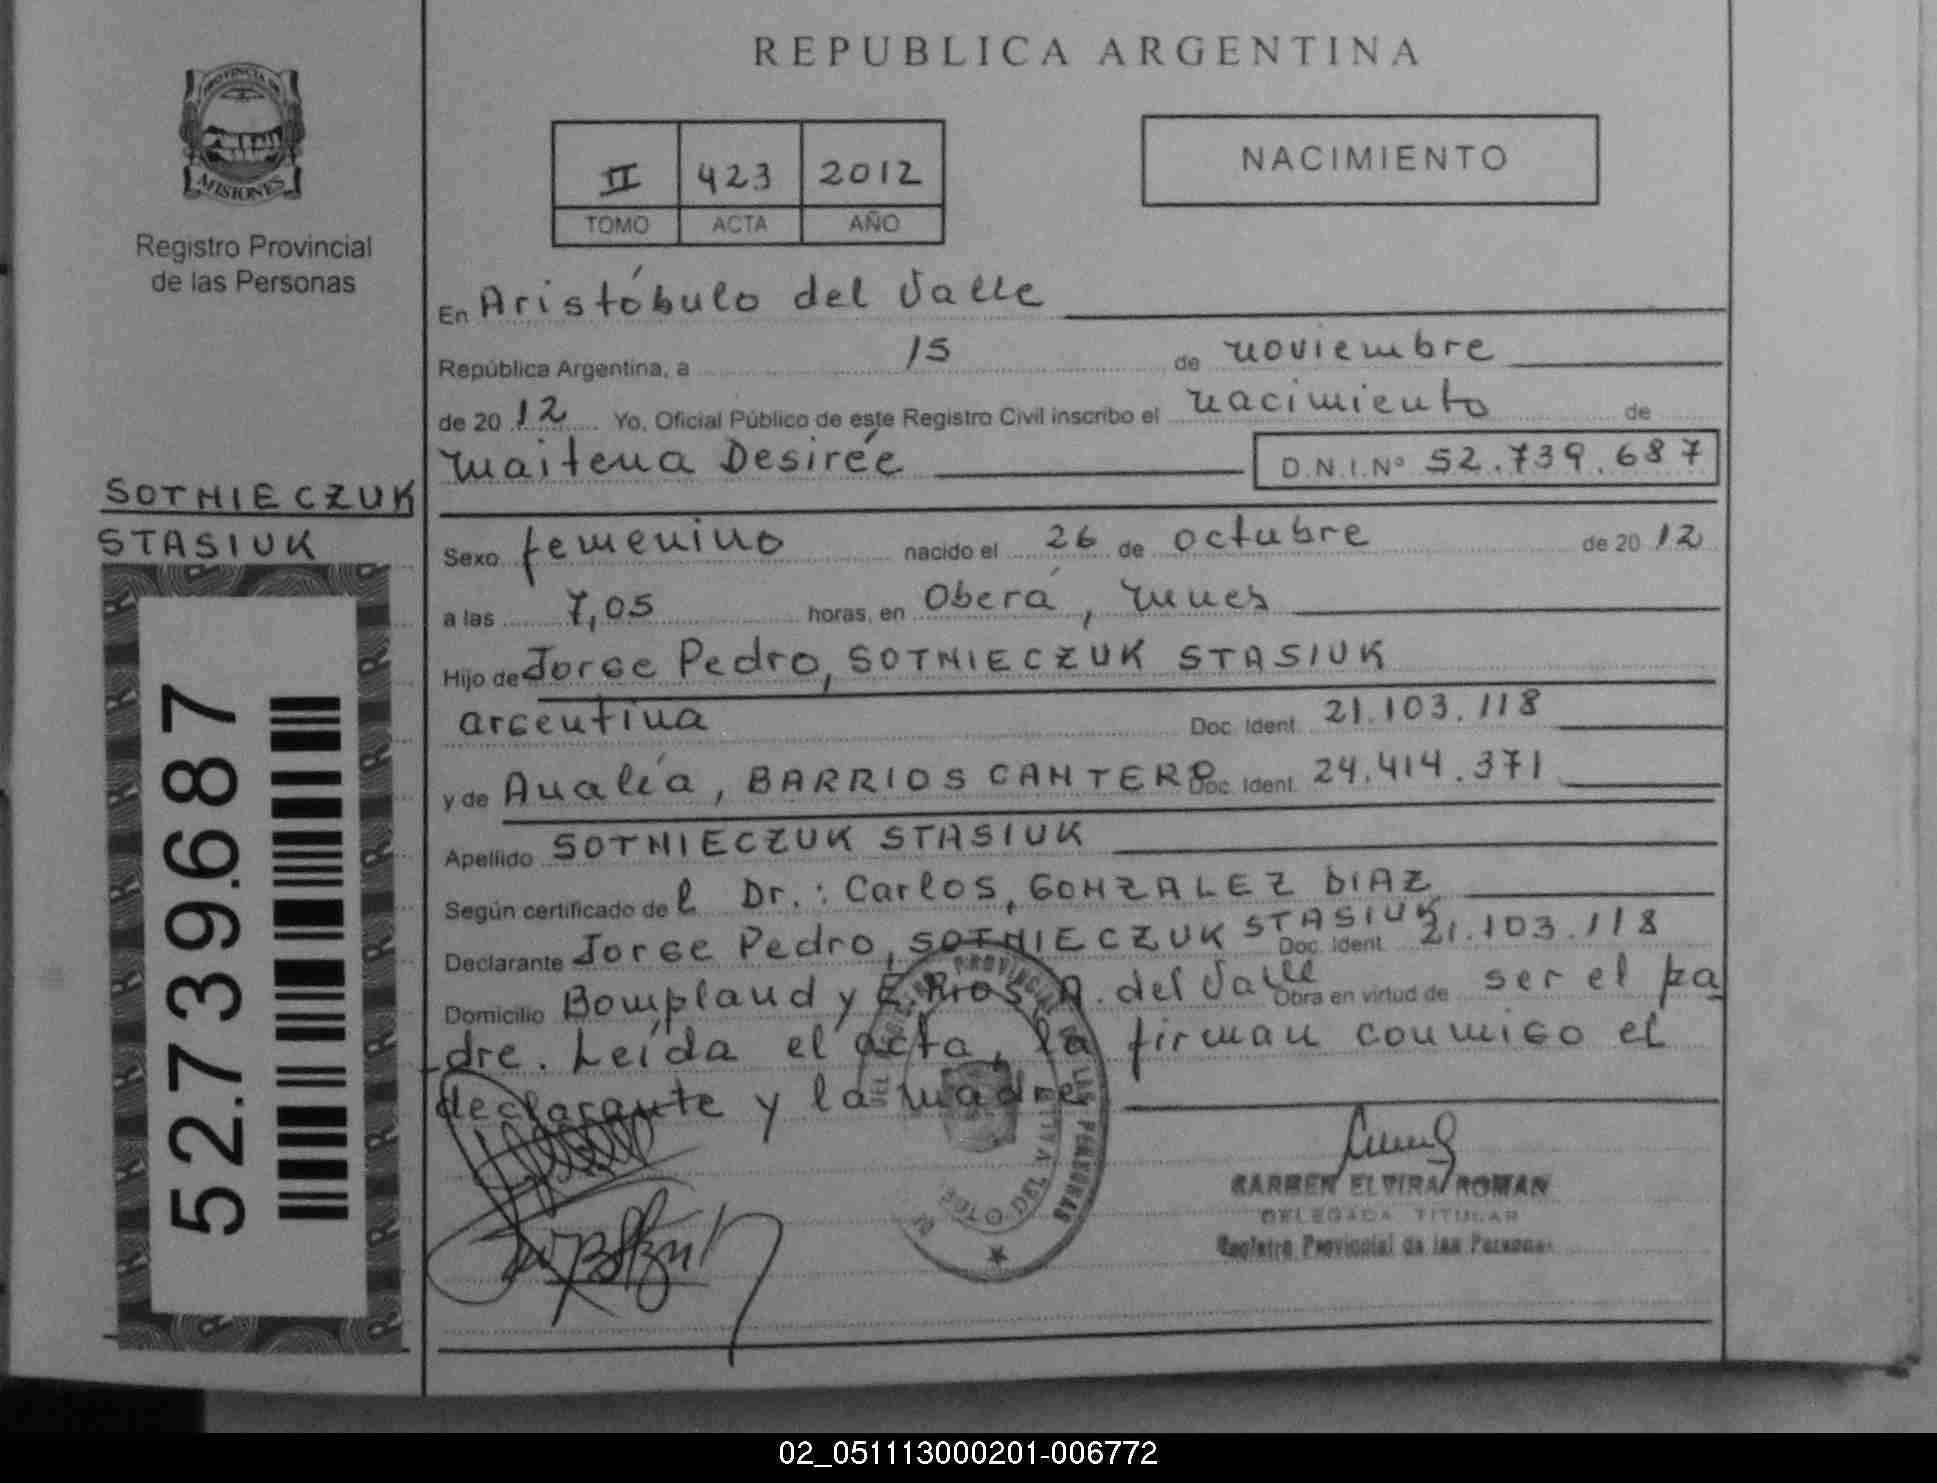 REPUBLICA ARGENTINA
PROVINCIA DE
MISIONES
Registro Provincial
de las Personas
II 423 2012
TOMO ACTA AÑO
NACIMIENTO
En Aristóbulo del Valle
República Argentina, a 15 de noviembre
de 20 12 Yo, Oficial Público de este Registro Civil inscribo el nacimiento de
Maitena Desirée D.N.I.Nº 52.739.687
SOTNIECZUK
STASIUK
Sexo femenino nacido el 26 de octubre de 20 12
a las 7,05 horas, en Oberá, Mnes
Hijo de Jorge Pedro, SOTNIECZUK STASIUK
argentina Doc. Ident. 21.103.118
y de Analía, BARRIOS CANTERO Doc. Ident. 24.414.371
Apellido SOTNIECZUK STASIUK
Según certificado de l Dr.: Carlos, GONZALEZ DIAZ
Declarante Jorge Pedro, SOTNIECZUK STASIUK Doc. Ident. 21.103.118
Domicilio Bompland y E. Rios A. del Valle Obra en virtud de ser el pa
dre. Leída el acta, la firman conmigo el
declarante y la madre
52.739.687
CARMEN ELVIRA ROMAN
DELEGADA TITULAR
Registro Provincial de las Personas
02_051113000201-006772